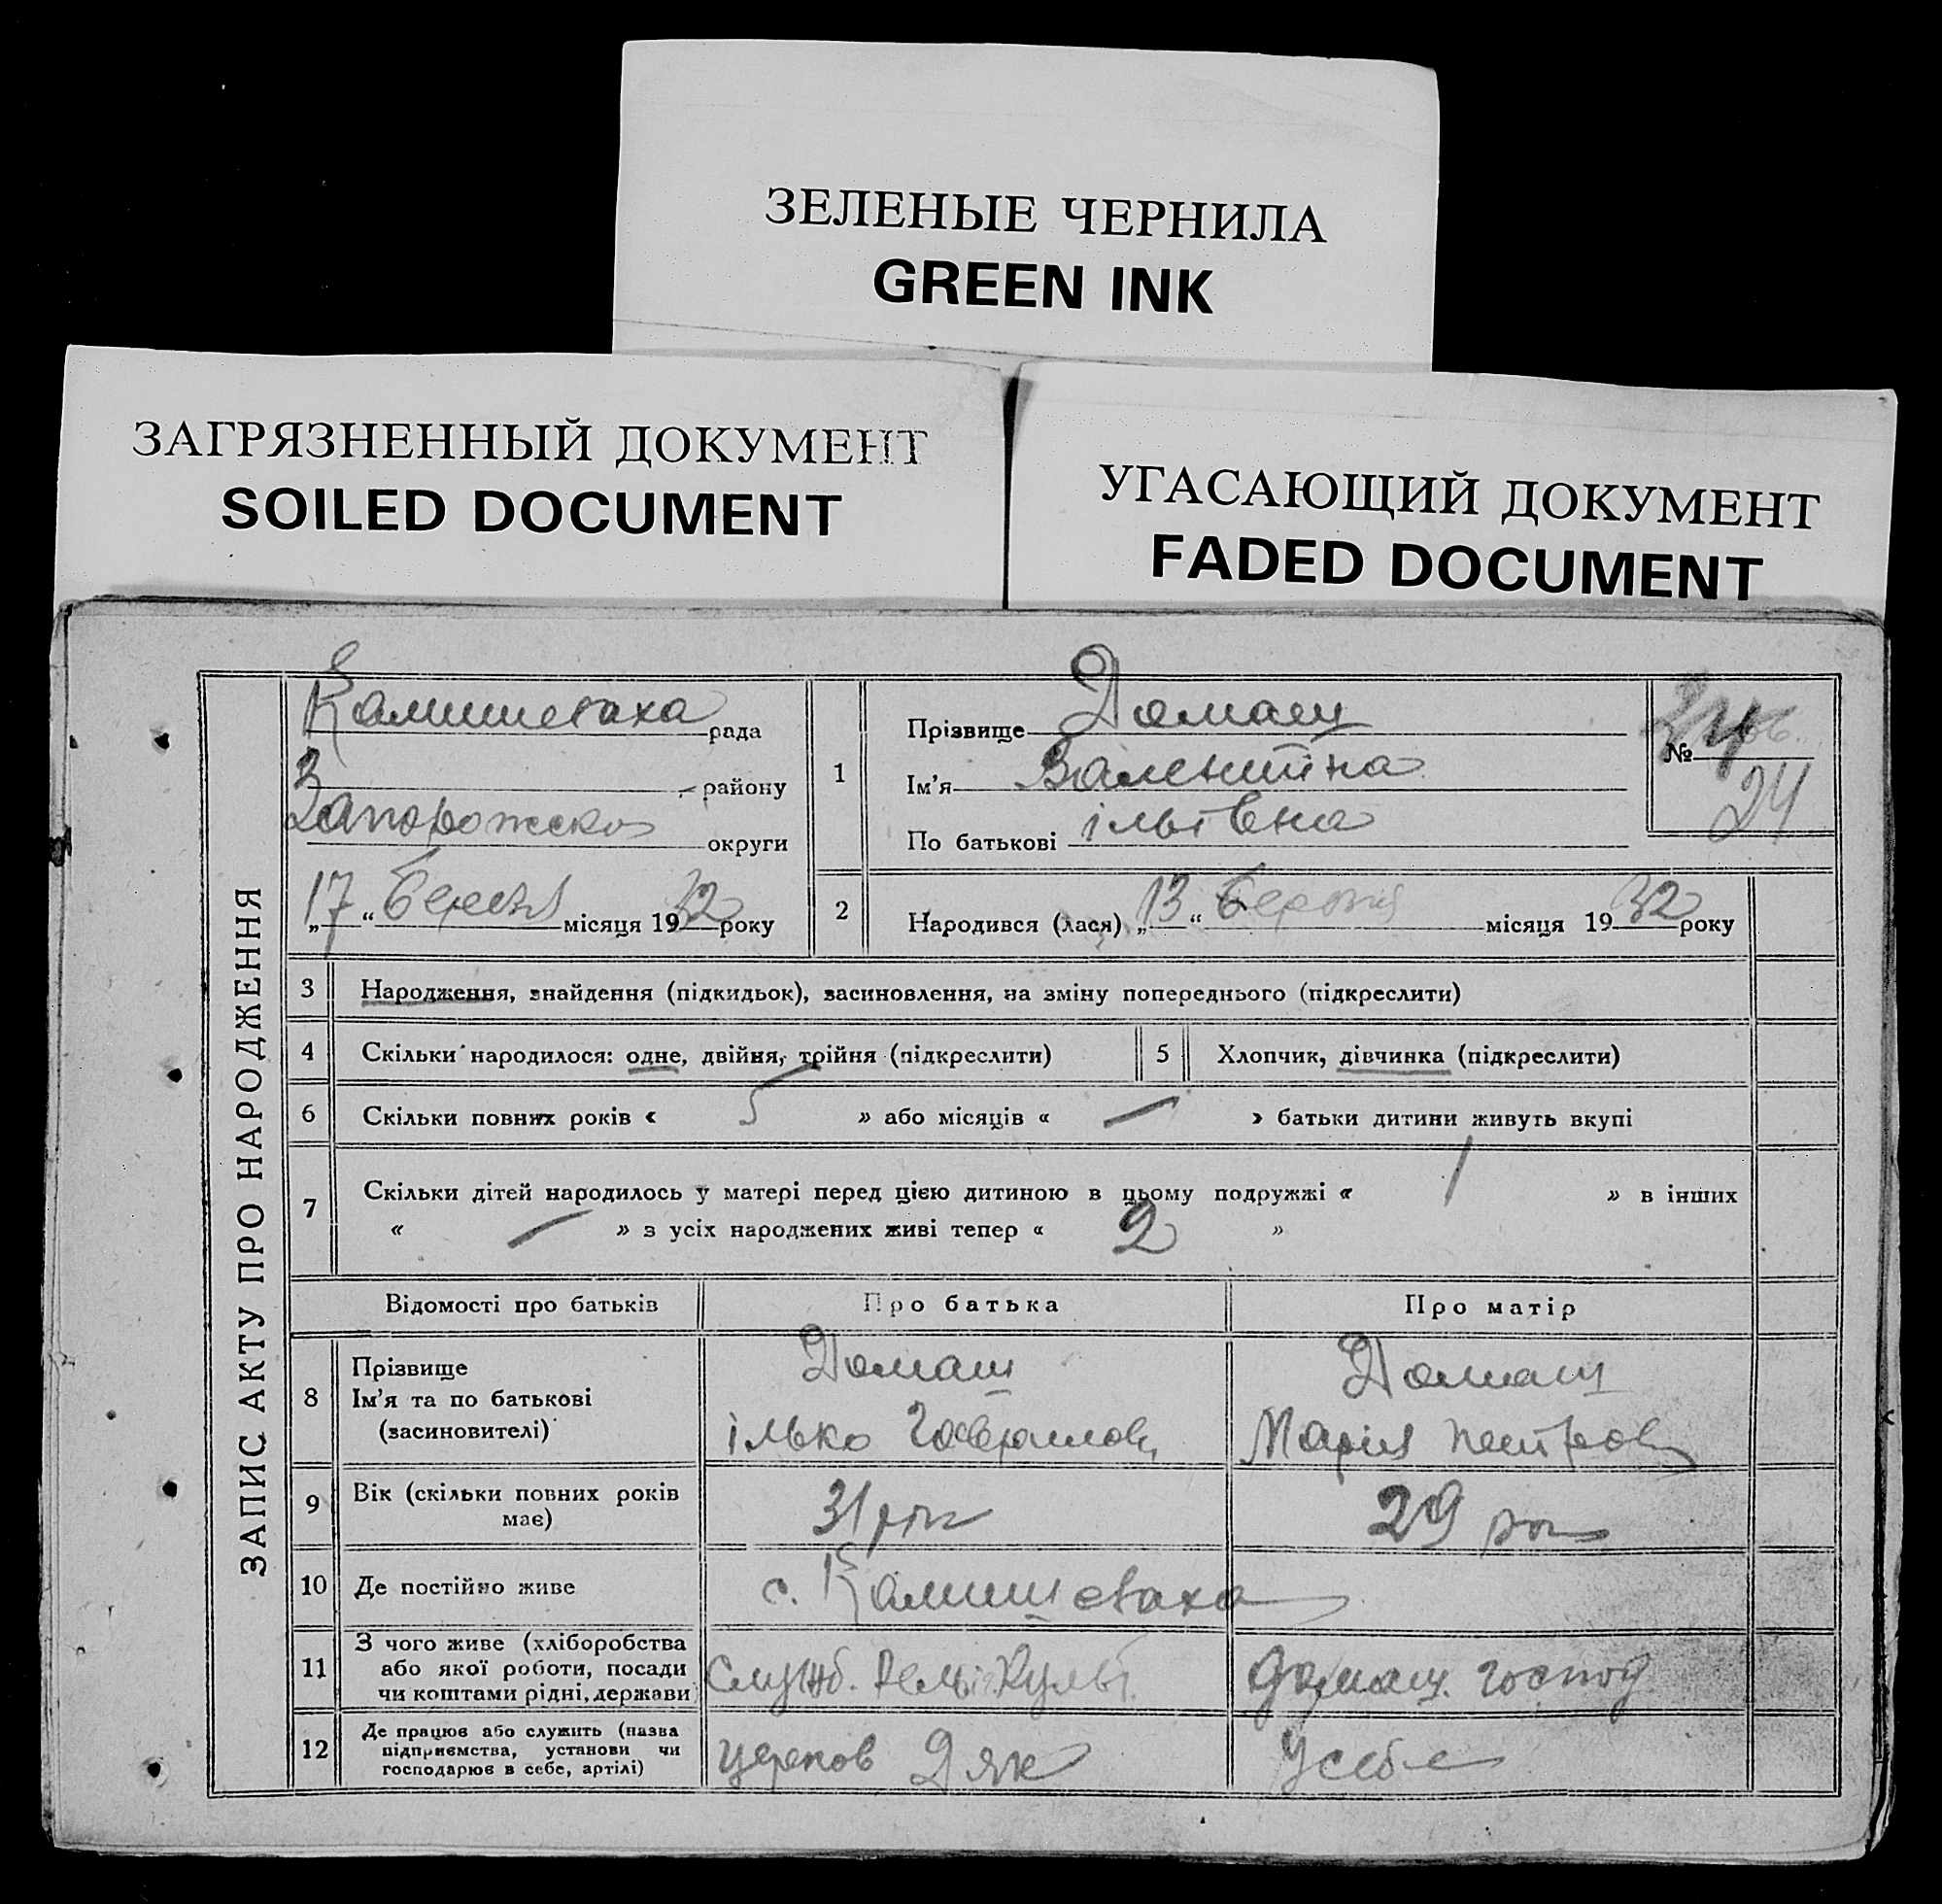 ЗЕЛЕНЫЕ ЧЕРНИЛА
GREEN INK
ЗАГРЯЗНЕННЫЙ ДОКУМЕНТ
SOILED DOCUMENT
УГАСАЮЩИЙ ДОКУМЕНТ
FADED DOCUMENT
ЗАПИС АКТУ ПРО НАРОДЖЕННЯ
Камишеваха рада
району
округи
„17“ березня місяця 1932 року
1
Прізвище Домащ
Ім'я Валентіна
По батькові ільївна
№
24
2
Народився (лася) „13“ березня місяця 1932 року
3 Народження, знайдення (підкидьок), засиновлення, на зміну попереднього (підкреслити)
4 Скільки народилося: одне, двійня, трійня (підкреслити) 5 Хлопчик, дівчинка (підкреслити)
6 Скільки повних років « 5 » або місяців « — » батьки дитини живуть вкупі
7 Скільки дітей народилось у матері перед цією дитиною в цьому подружжі « 1 » в інших
« — » з усіх народжених живі тепер « 2 »
Відомості про батьків Про батька Про матір
8 Прізвище
Ім'я та по батькові
(засиновителі)
Домаш
ілько
Домащ
Марія
9 Вік (скільки повних років
має)
31 рік
29 рок
10 Де постійно живе с. Камишеваха
11 З чого живе (хліборобства
або якої роботи, посади
чи коштами рідні, держави
Служб. Культ.
домащ. господ
12 Де працює або служить (назва
підприємства, установи чи
господарює в себе, артілі)
церков Дяк
У себе